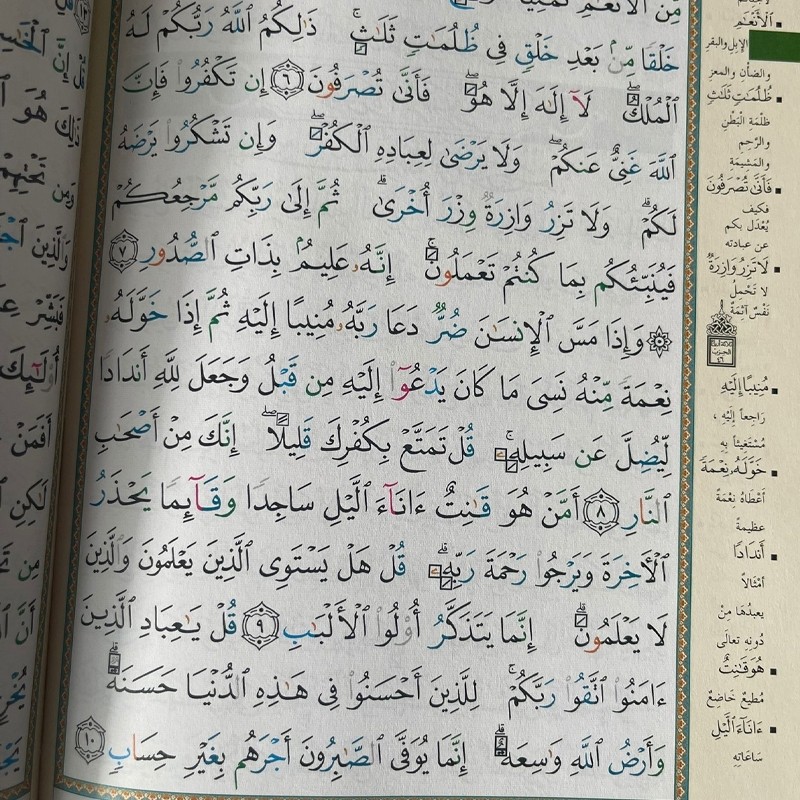 مِنَ ٱلْأَنْعَٰمِ
خَلْقًا مِّنۢ بَعْدِ خَلْقٍ فِى ظُلُمَٰتٍ ثَلَٰثٍ ۚ ذَٰلِكُمُ ٱللَّهُ رَبُّكُمْ لَهُ
ٱلْمُلْكُ ۖ لَآ إِلَٰهَ إِلَّا هُوَ ۖ فَأَنَّىٰ تُصْرَفُونَ ٦ إِن تَكْفُرُوا۟ فَإِنَّ
ٱللَّهَ غَنِىٌّ عَنكُمْ ۖ وَلَا يَرْضَىٰ لِعِبَادِهِ ٱلْكُفْرَ ۖ وَإِن تَشْكُرُوا۟ يَرْضَهُ
لَكُمْ ۗ وَلَا تَزِرُ وَازِرَةٌ وِزْرَ أُخْرَىٰ ۗ ثُمَّ إِلَىٰ رَبِّكُم مَّرْجِعُكُمْ
فَيُنَبِّئُكُم بِمَا كُنتُمْ تَعْمَلُونَ ۚ إِنَّهُۥ عَلِيمٌۢ بِذَاتِ ٱلصُّدُورِ ٧
۞ وَإِذَا مَسَّ ٱلْإِنسَٰنَ ضُرٌّ دَعَا رَبَّهُۥ مُنِيبًا إِلَيْهِ ثُمَّ إِذَا خَوَّلَهُۥ
نِعْمَةً مِّنْهُ نَسِىَ مَا كَانَ يَدْعُوٓا۟ إِلَيْهِ مِن قَبْلُ وَجَعَلَ لِلَّهِ أَندَادًا
لِّيُضِلَّ عَن سَبِيلِهِۦ ۚ قُلْ تَمَتَّعْ بِكُفْرِكَ قَلِيلًا ۖ إِنَّكَ مِنْ أَصْحَٰبِ
ٱلنَّارِ ٨ أَمَّنْ هُوَ قَٰنِتٌ ءَانَآءَ ٱلَّيْلِ سَاجِدًا وَقَآئِمًا يَحْذَرُ
ٱلْـَٔاخِرَةَ وَيَرْجُوا۟ رَحْمَةَ رَبِّهِۦ ۗ قُلْ هَلْ يَسْتَوِى ٱلَّذِينَ يَعْلَمُونَ وَٱلَّذِينَ
لَا يَعْلَمُونَ ۗ إِنَّمَا يَتَذَكَّرُ أُو۟لُوا۟ ٱلْأَلْبَٰبِ ٩ قُلْ يَٰعِبَادِ ٱلَّذِينَ
ءَامَنُوا۟ ٱتَّقُوا۟ رَبَّكُمْ ۚ لِلَّذِينَ أَحْسَنُوا۟ فِى هَٰذِهِ ٱلدُّنْيَا حَسَنَةٌ ۗ
وَأَرْضُ ٱللَّهِ وَٰسِعَةٌ ۗ إِنَّمَا يُوَفَّى ٱلصَّٰبِرُونَ أَجْرَهُم بِغَيْرِ حِسَابٍ ١٠
ٱلْأَنْعَٰمِ
الإبل والبقر
والضأن والمعز
ظُلُمَٰتٍ ثَلَٰثٍ
ظلمة البطن
والرحم
والمشيمة
فَأَنَّىٰ تُصْرَفُونَ
فكيف
يُعْدَل بكم
عن عبادته
لَا تَزِرُ وَازِرَةٌ
لا تَحْمِلُ
نَفْسٌ آثِمَةٌ
مُنِيبًا إِلَيْهِ
رَاجعاً إليه ،
مُسْتغيثاً به
خَوَّلَهُۥ نِعْمَةً
أعْطاهُ نِعْمَةً
عظيمةً
أَندَادًا
أمْثالاً
يعبدُها مِنْ
دُونِهِ تعالى
هُوَ قَٰنِتٌ
مُطيعٌ خاضِعٌ
ءَانَآءَ ٱلَّيْلِ
سَاعَاتِهِ